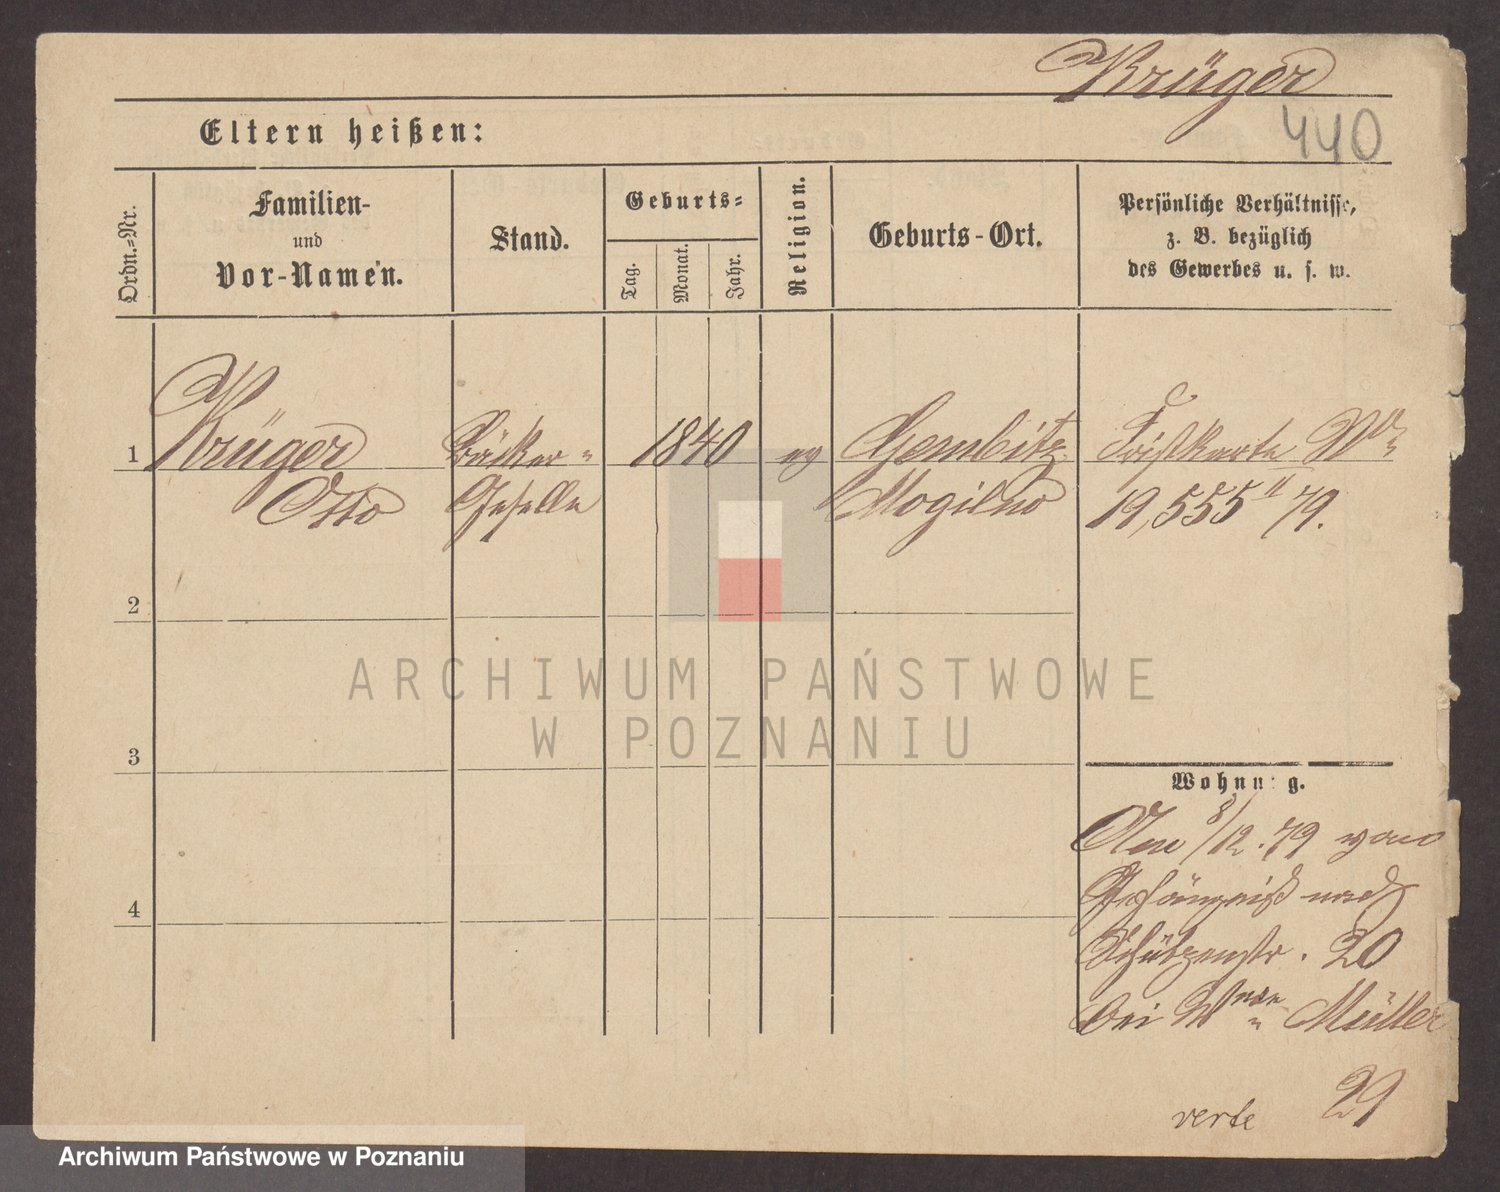 Krüger
440
Eltern heißen:
Ordn.=Nr.
Familien-
und
Vor-Namen.
Stand.
Geburts=
Tag.
Monat.
Jahr.
Religion.
Geburts-Ort.
Persönliche Verhältnisse,
z. B. bezüglich
des Gewerbes u. s. w.
1 Krüger Bäcker= 1840 ev Gembitz
Otto Geselle Mogilno 19,555 II 79.
2
3
4
Wohnung.
Am 8/12.79 vom
Gefängniß nach
Schützenstr. 20
bei Wwe Müller
29
verte
ARCHIWUM PAŃSTWOWE
W POZNANIU
Archiwum Państwowe w Poznaniu